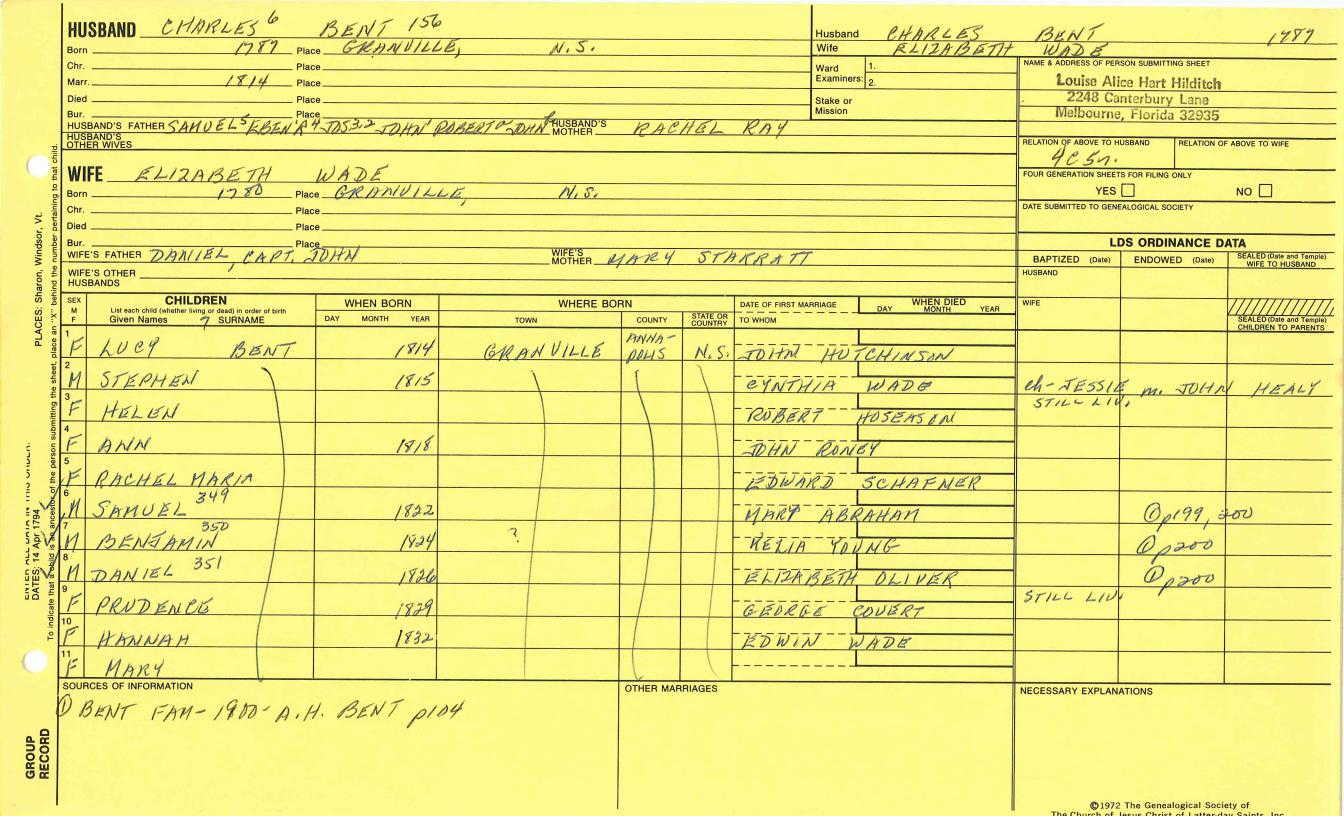 HUSBAND CHARLES 6 BENT 156
Born 1787 Place GRANVILLE, N.S.
Chr. Place
Marr. 1814 Place
Died Place
Bur. Place
HUSBAND'S FATHER SAMUEL 5 EBEN'R 4 JOS 3,2 JOHN 1 ROBERT JOHN HUSBAND'S MOTHER RACHEL RAY
HUSBAND'S OTHER WIVES
Husband CHARLES BENT 1787
Wife ELIZABETH WADE
Ward Examiners: 1.
2.
Stake or Mission
NAME & ADDRESS OF PERSON SUBMITTING SHEET
Louise Alice Hart Hilditch
2248 Canterbury Lane
Melbourne, Florida 32935
RELATION OF ABOVE TO HUSBAND RELATION OF ABOVE TO WIFE
4C5r.
FOUR GENERATION SHEETS FOR FILING ONLY
YES NO
DATE SUBMITTED TO GENEALOGICAL SOCIETY
WIFE ELIZABETH WADE
Born 1780 Place GRANVILLE, N.S.
Chr. Place
Died Place
Bur. Place
WIFE'S FATHER DANIEL, CAPT. JOHN WIFE'S MOTHER MARY STARRATT
WIFE'S OTHER HUSBANDS
LDS ORDINANCE DATA
BAPTIZED (Date) ENDOWED (Date) SEALED (Date and Temple) WIFE TO HUSBAND
HUSBAND
WIFE
SEALED (Date and Temple) CHILDREN TO PARENTS
SEX M F CHILDREN List each child (whether living or dead) in order of birth Given Names 7 SURNAME WHEN BORN DAY MONTH YEAR WHERE BORN TOWN COUNTY STATE OR COUNTRY DATE OF FIRST MARRIAGE TO WHOM WHEN DIED DAY MONTH YEAR
1 F LUCY BENT 1814 GRANVILLE ANNA-POLIS N.S. JOHN HUTCHINSON
2 M STEPHEN 1815 CYNTHIA WADE ch-JESSIE m. JOHN HEALY
STILL LIV.
3 F HELEN ROBERT HOSEASON
4 F ANN 1818 JOHN RONEY
5 F RACHEL MARIA EDWARD SCHAFNER
6 M SAMUEL 349 1822 MARY ABRAHAM ① p199, 200
7 M BENJAMIN 350 1824 ? YOUNG ① p200
8 M DANIEL 351 1826 ELIZABETH OLIVER ① p200
9 F PRUDENCE 1829 GEORGE COVERT STILL LIV.
10 F HANNAH 1832 EDWIN WADE
11 F MARY
SOURCES OF INFORMATION
① BENT FAM- 1900- A.H. BENT p104
OTHER MARRIAGES
NECESSARY EXPLANATIONS
PLACES: Sharon, Windsor, Vt.
DATES: 14 Apr 1794
To indicate that a child is an ancestor of the person submitting the sheet, place an "X" behind the number pertaining to that child.
GROUP RECORD
©1972 The Genealogical Society of
The Church of Jesus Christ of Latter-day Saints, Inc.